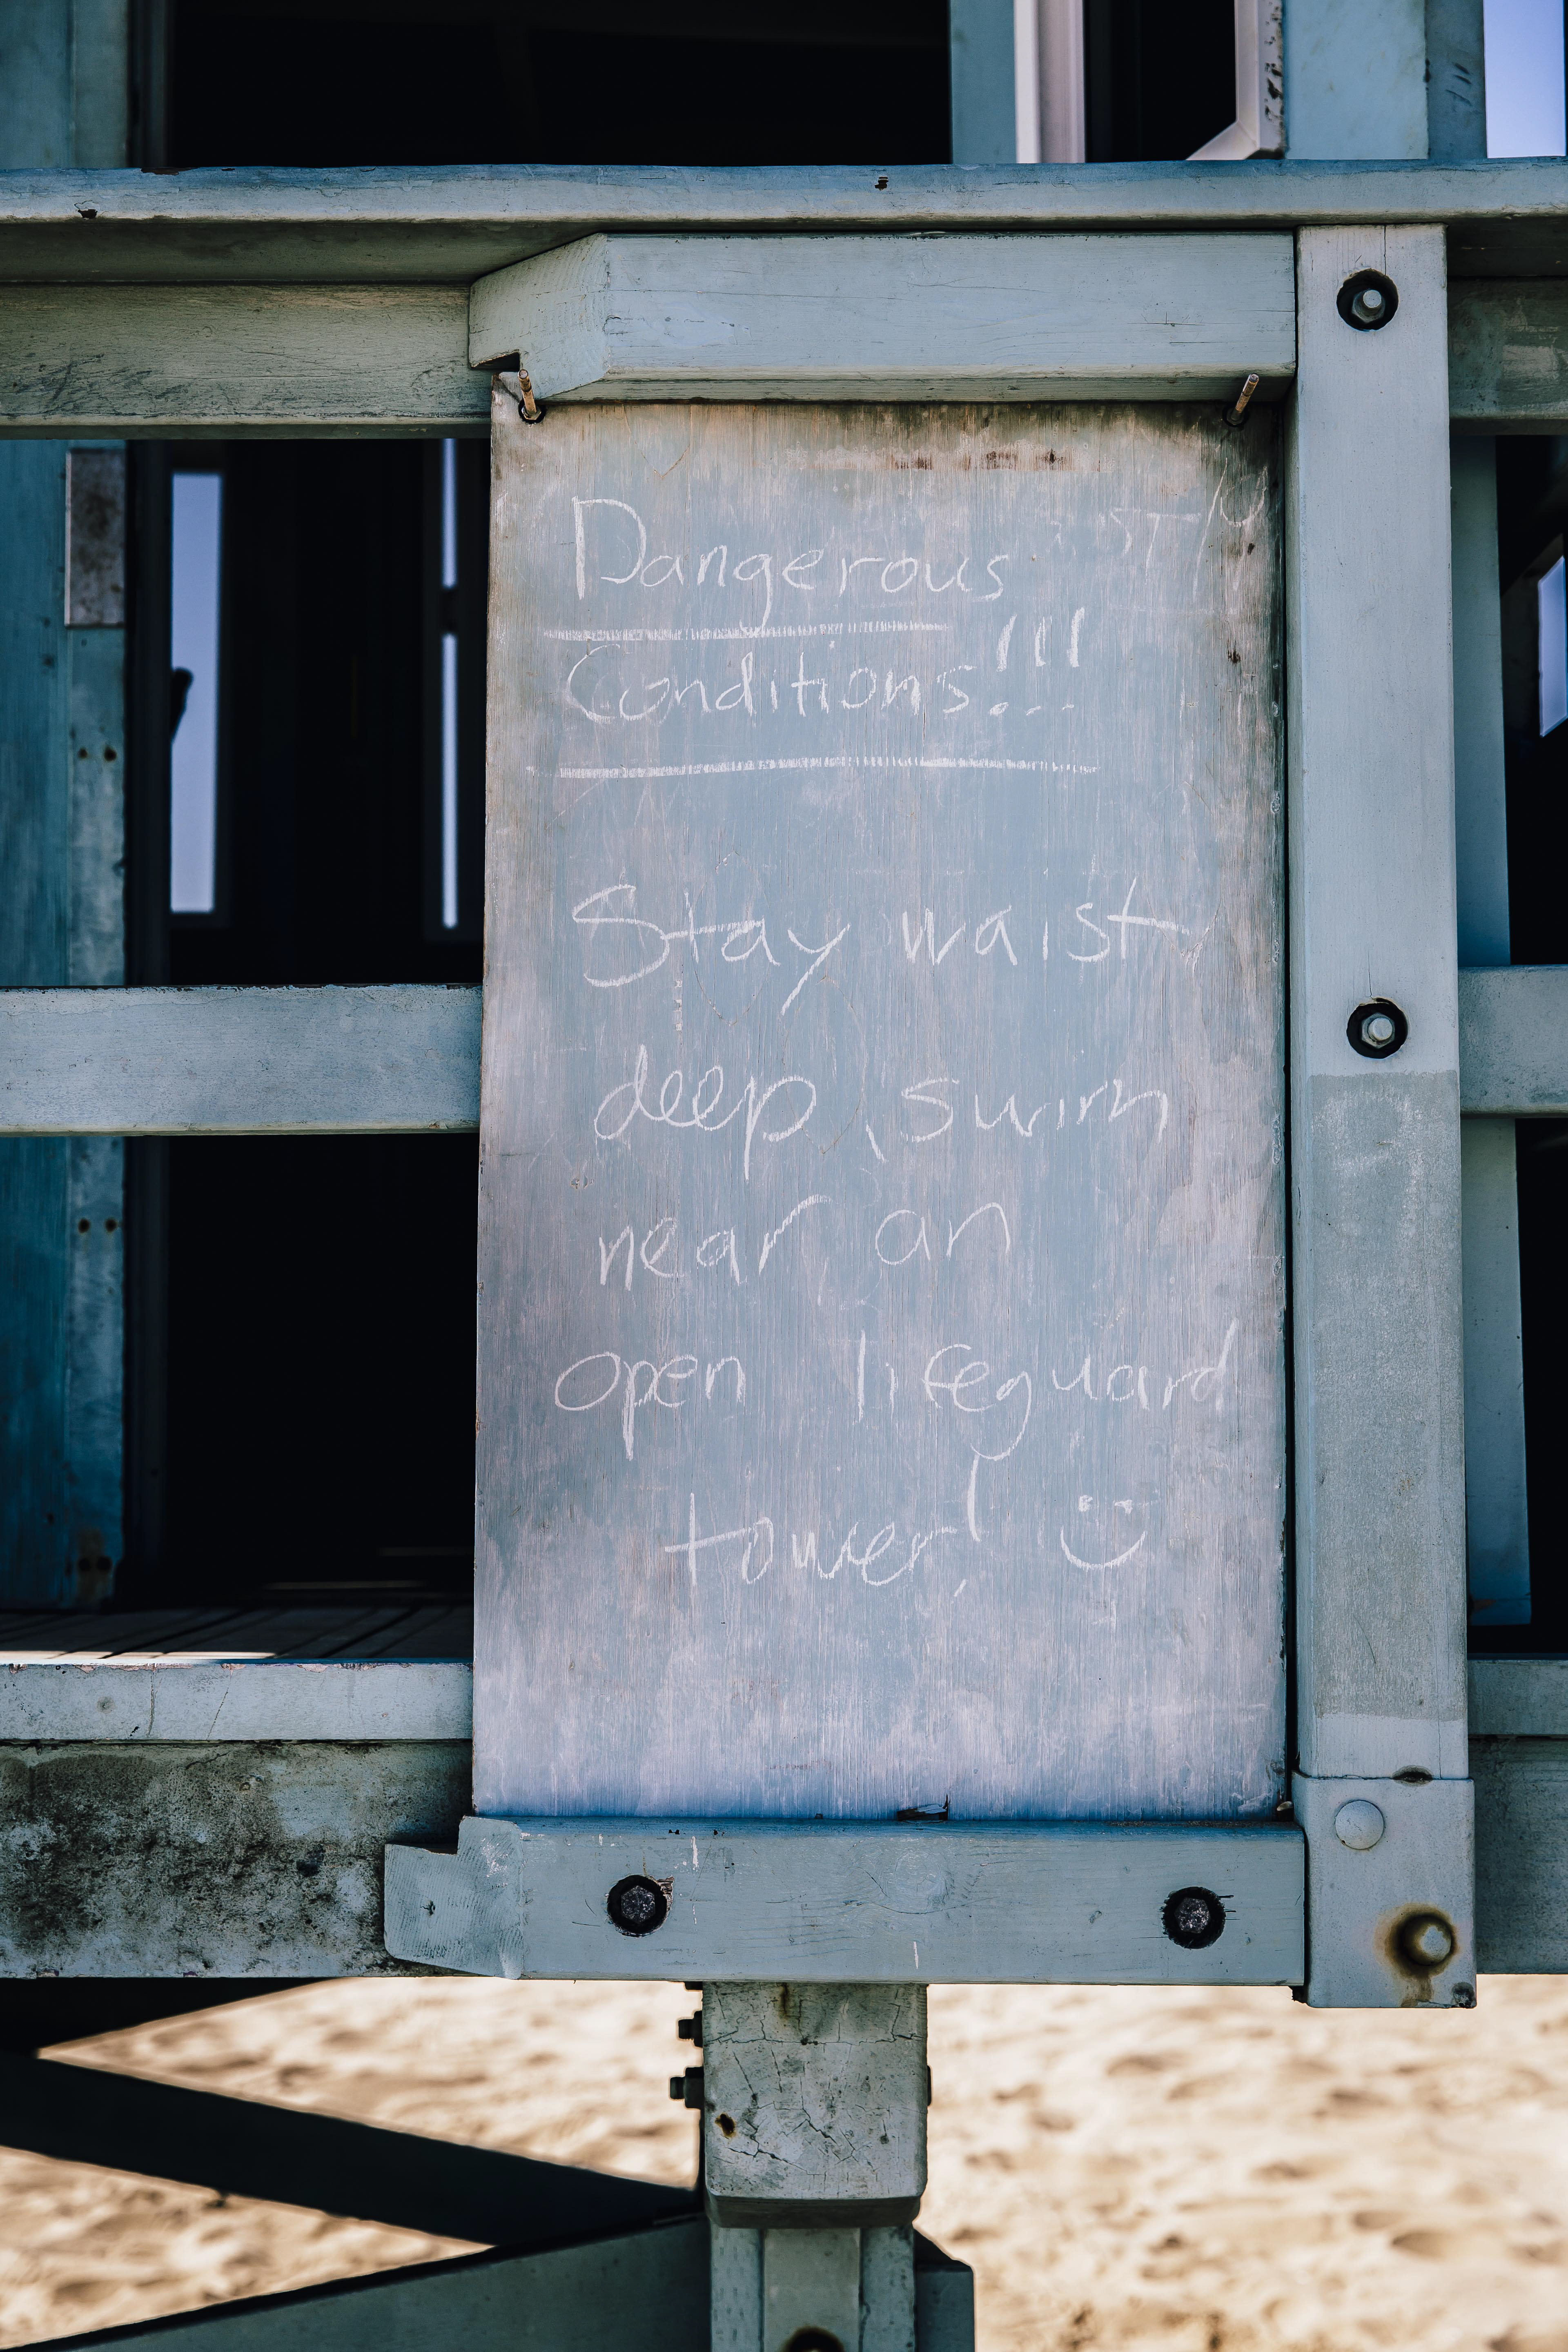 Dangerous
Conditions!!!
Stay waist
deep, swim
near an
open lifeguard
tower! :)